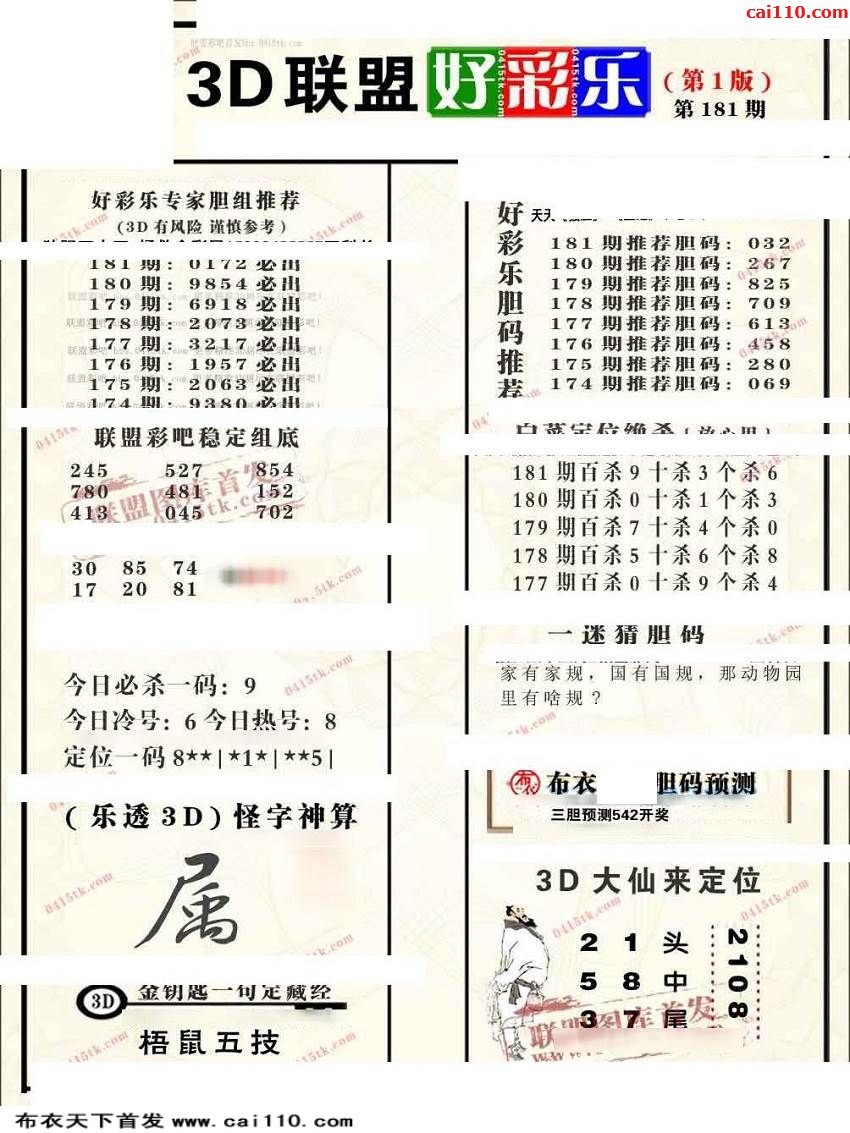 cai110.com
3D联盟好彩乐
(第1版)
第181期
好彩乐专家胆组推荐
(3D有风险 谨慎参考)
181期: 0172必出
180期: 9854必出
179期: 6918必出
178期: 2073必出
177期: 3217必出
176期: 1957必出
175期: 2063必出
174期: 9380必出
联盟彩吧稳定组底
245 527 854
780 481 152
413 045 702
30 85 74
17 20 81
今日必杀一码: 9
今日冷号: 6 今日热号: 8
定位一码 8**|*1*|**5|
(乐透3D)怪字神算
属
3D 金钥匙一句定藏经
梧鼠五技
好彩乐胆码推荐
181期推荐胆码: 032
180期推荐胆码: 267
179期推荐胆码: 825
178期推荐胆码: 709
177期推荐胆码: 613
176期推荐胆码: 458
175期推荐胆码: 280
174期推荐胆码: 069
白菜定位绝杀(放心用)
181期百杀9十杀3个杀6
180期百杀0十杀1个杀3
179期百杀7十杀4个杀0
178期百杀5十杀6个杀8
177期百杀0十杀9个杀4
一迷猜胆码
家有家规，国有国规，那动物园
里有啥规？
布衣 胆码预测
三胆预测542开奖
3D大仙来定位
2 1 头
5 8 中
3 7 尾
2108
联盟图库首发
0415tk.com
布衣天下首发 www.cai110.com